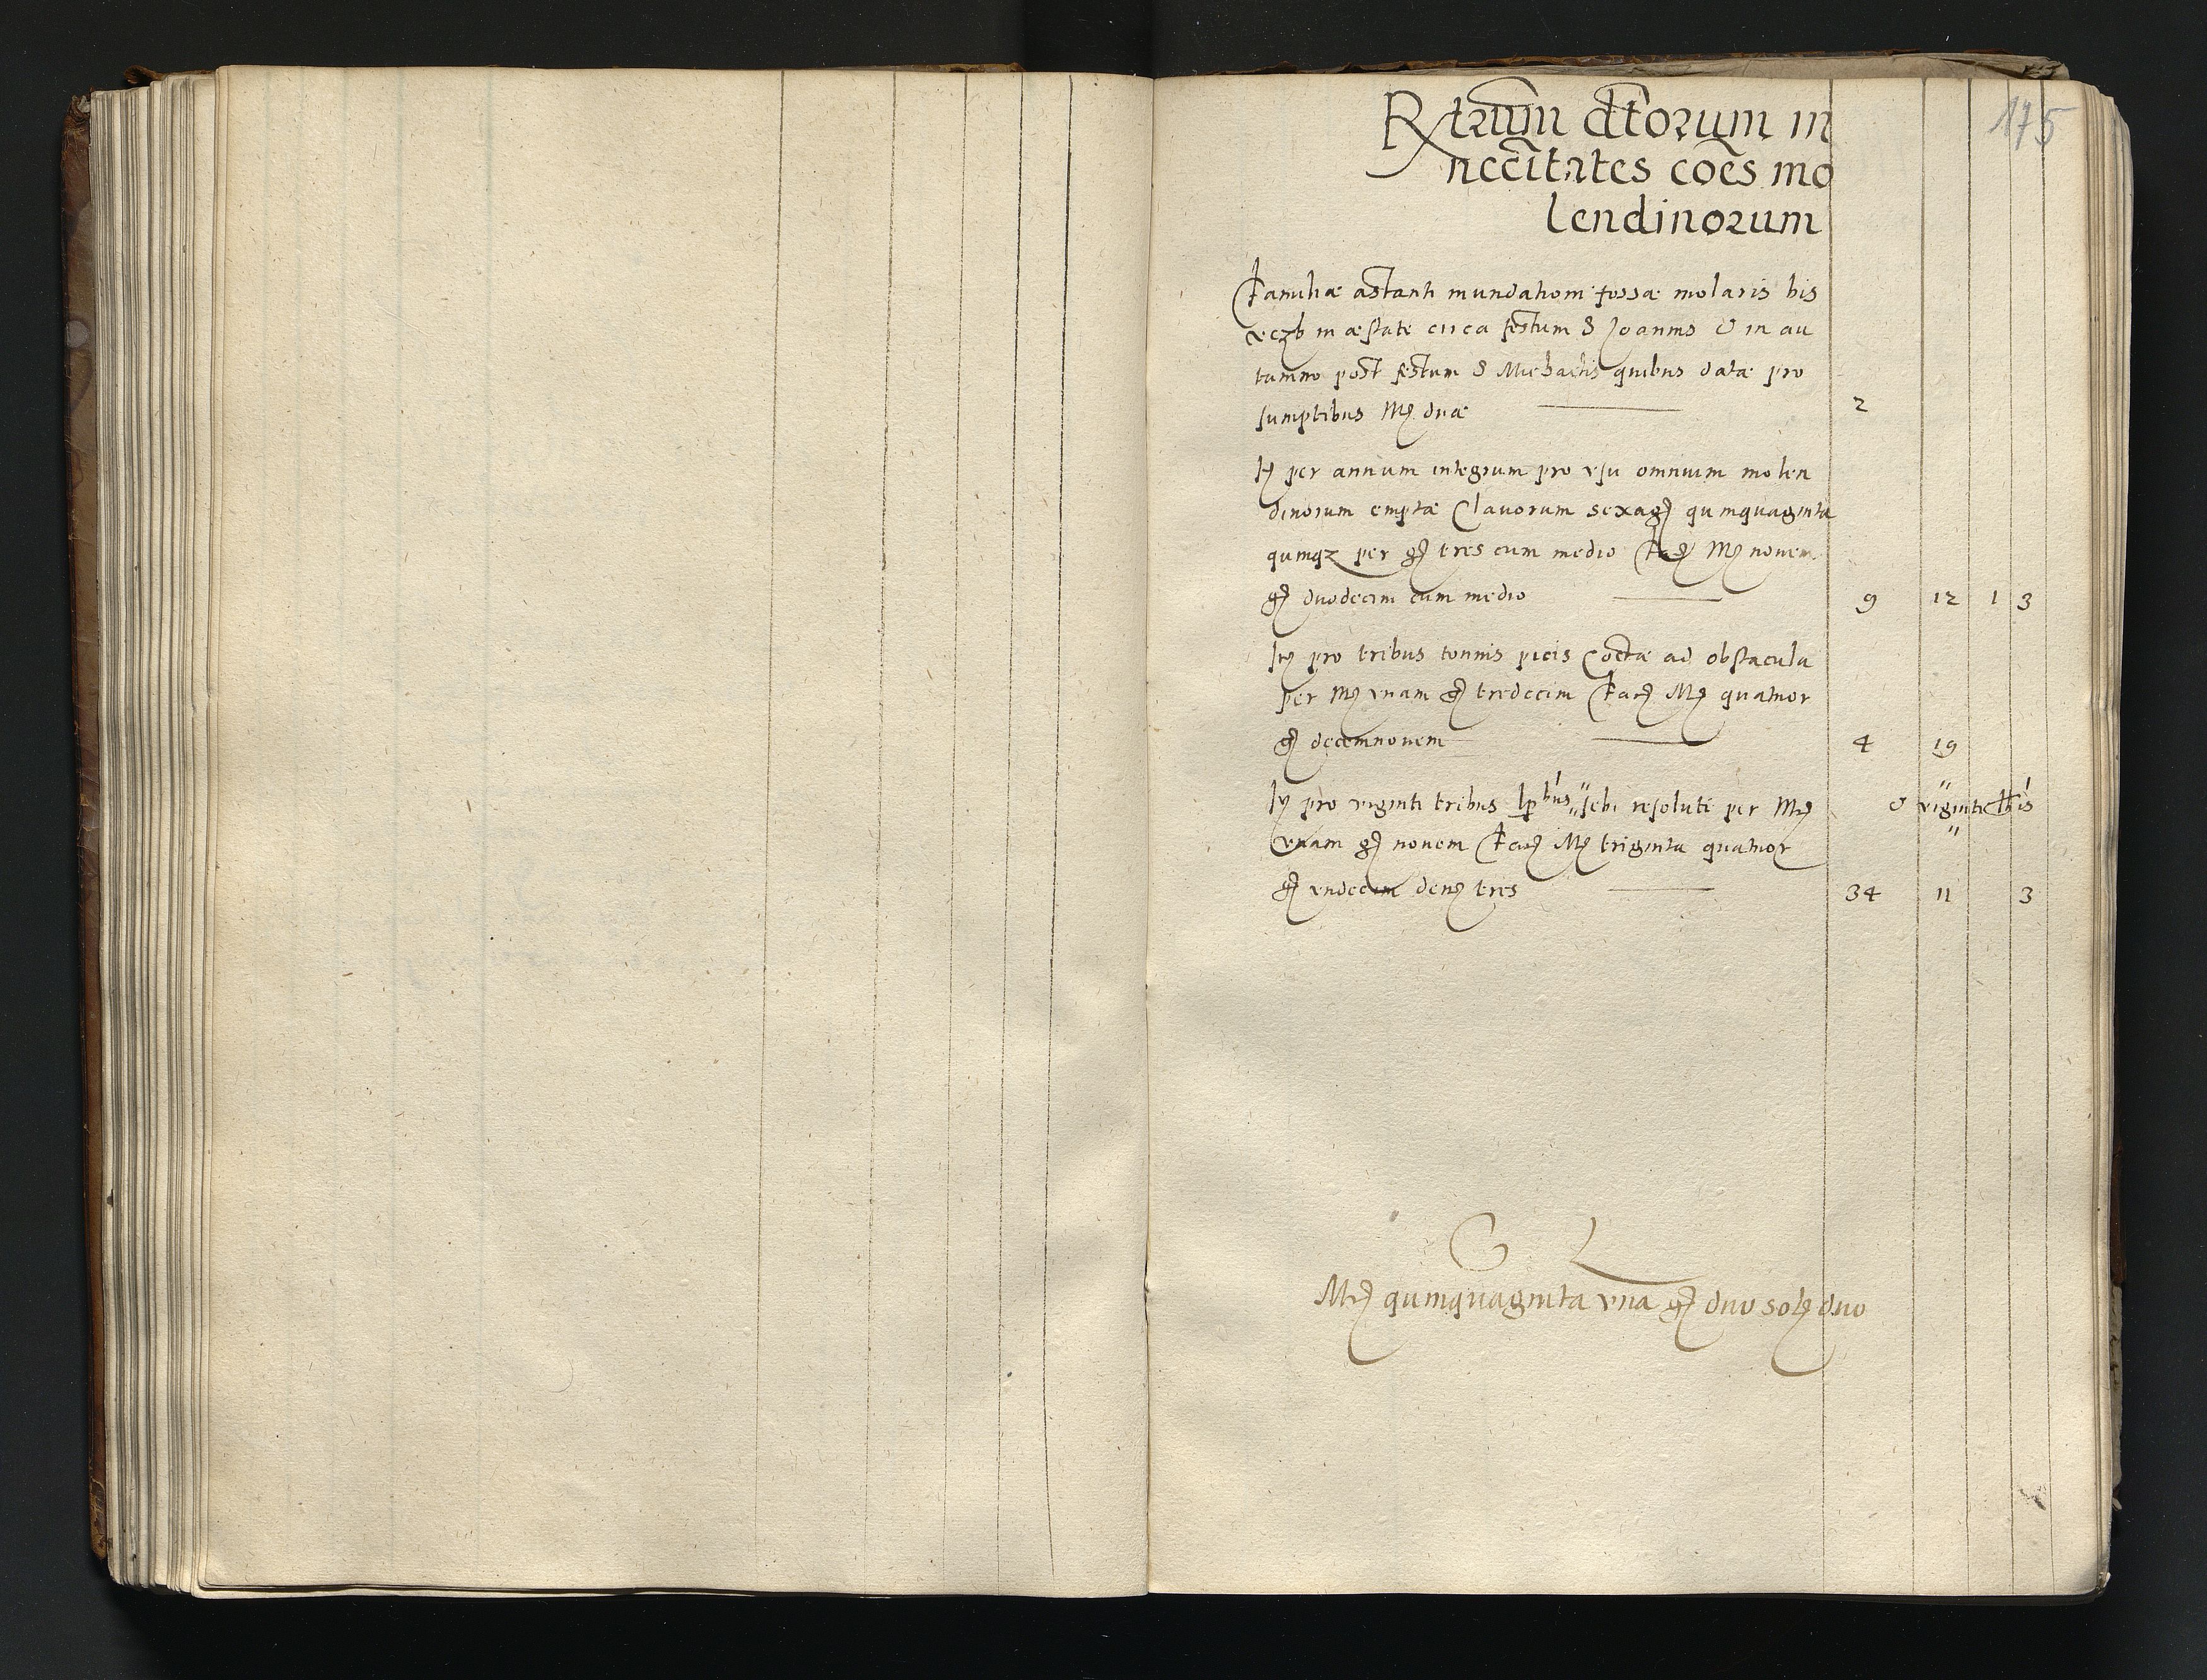 175
Rxtrum dtorum in
neccitates coes mo
lendinorum
Familiæ astanti mundationi fossæ molaris bis
in æstate circa festum S Joannis & in au
tumno post festum S Michaelis quibus datæ pro
sumptibus Mr duæ 2
It per annum integrum pro vsu omnium molen
dinorum emptæ Clauorum sexag quinquaginta
quinqz per gr tres cum medio fac Mr nouem
gr duodecim cum medio 9 12 1 3
It pro tribus tonnis picis Coctæ ad obstacula
per Mr vnam gr tredecim fac Mr quatuor
gr decemnouem 4 19
It pro viginti tribus lp bus " sebi resoluti per Mr & viginti lb is "
vnam gr nouem fac Mr triginta quatuor
gr vndecim den tres 34 11 3
Mr quinquaginta vna gr duo sol duo